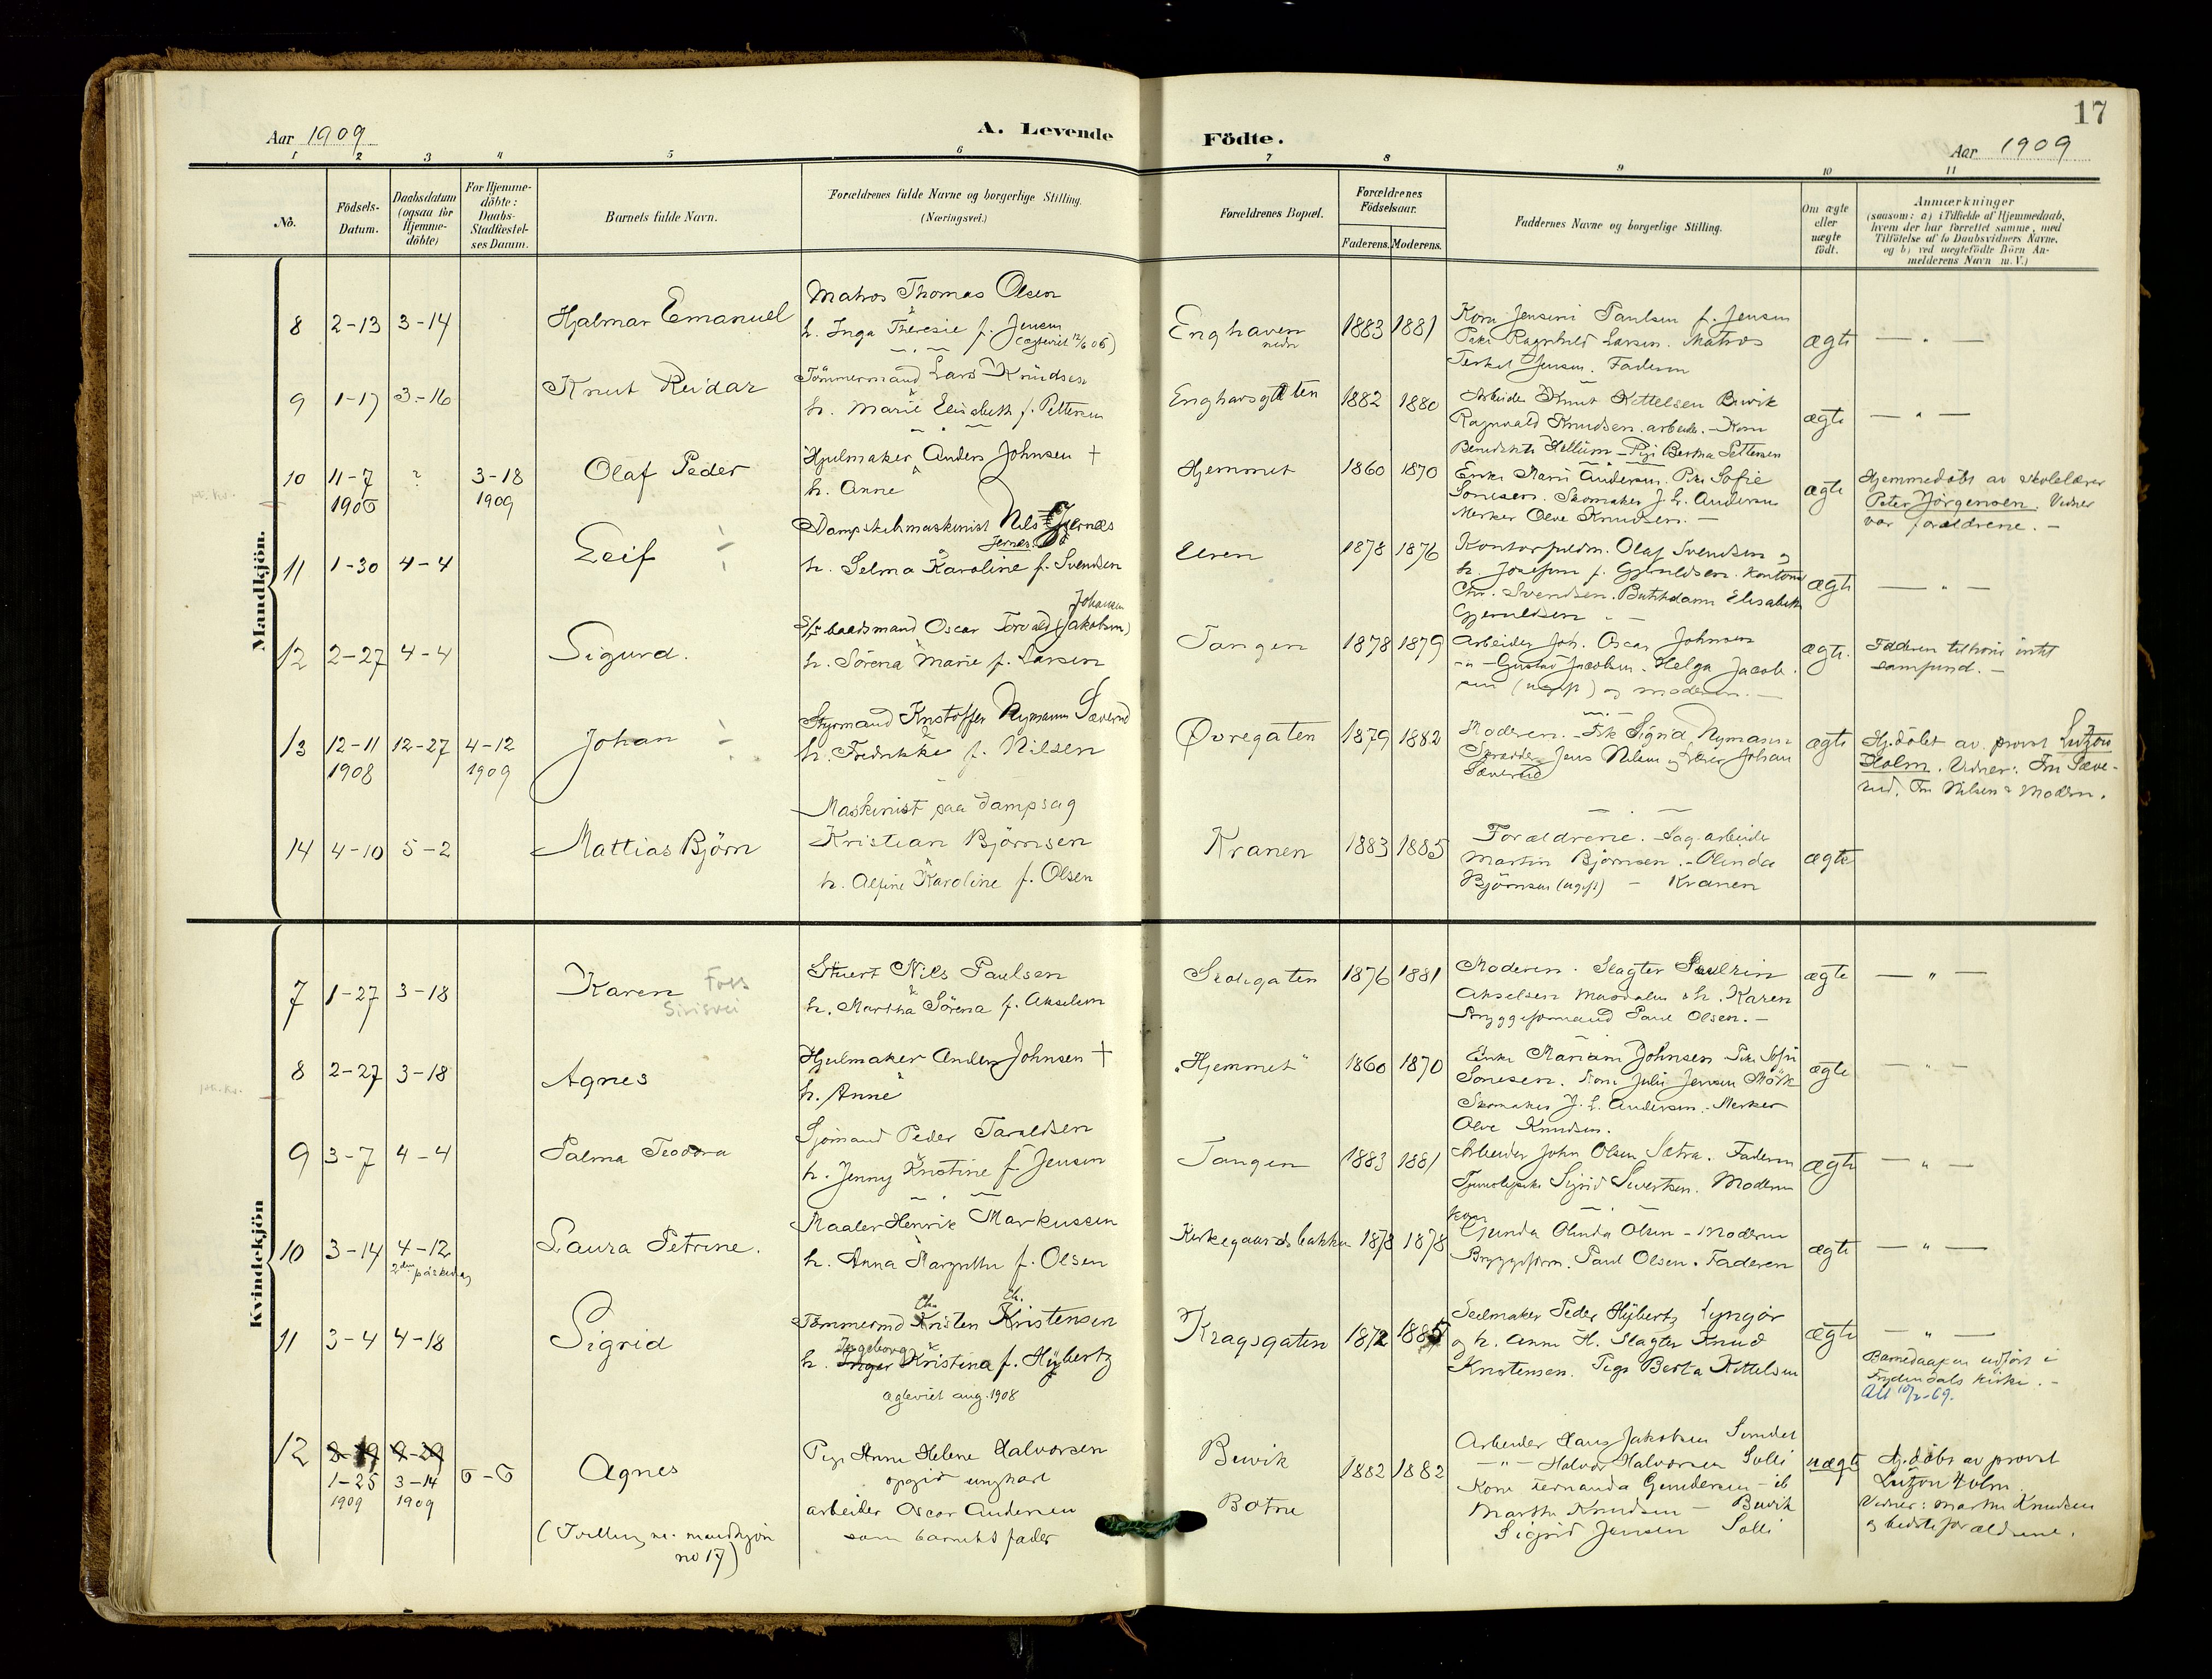 17
Aar 1909
A. Levende Födte.
Aar 1909
1 2 3 4 5 6 7 8 9 10 11
No.
Födsels-
Datum.
Daabsdatum
(ogsaa for
Hjemme-
döbte)
For Hjemme-
döbte:
Daabs-
Stadfæstel-
ses Datum.
Barnets fulde Navn.
Forældrenes fulde Navne og borgerlige Stilling.
(Næringsvei.)
Forældrenes Bopæl.
Forældrenes
Födselsaar.
Faderens. Moderens.
Faddernes Navne og borgerlige Stilling.
Om ægte
eller
uægte
födt.
Anmærkninger
(saasom: a) i Tilfælde af Hjemmedaab,
hvem der har forrettet samme, med
Tilföielse af to Daabsvidners Navne,
og b) ved uægtefödte Börn An-
melderens Navn m. V.)
Mandkjön.
8 2-13 3-14
Hjalmar Emanuel
Matros Thomas Olsen
h. Inga Theresie f. Jensen
(ægteviet 12/6 06)
Enghaven
nedre
1883 1881
Kone Jensine Paulsen f. Jensen
Pike Ragnhild Larsen. Matros
Terkel Jensen. Faderen
ægte
9 1-17 3-16
Knut Reidar
Tömmermand Lars Knudsen
h. Marie Elisabeth f. Pettersen
Enghavsgaten
1882 1880
Arbeider Knut Kittelsen Buvik
Ragnvald Knudsen. arbeider. - Kone
Benedikte Hellum - Pige Bertha Pettersen
ægte
10 11-7
1906
?
3-18
1909
Olaf Peder
Hjulmaker Anders Johnsen †
h. Anne
Hjemmet
1860 1870
Enke Marie Andersen. Pike Sofie
Sonesen. Skomaker J. L. Andersen
Merker Olve Knudsen. -
ægte
Hjemmedöbt av skolelærer
Peter Jörgensen. Vidner
var forældrene. -
11 1-30 4-4
Leif
Dampskibmaskinist Nils Jernæs
Jernes.
h. Selma Karoline f. Svendsen
Uren
1878 1876
Kontorfuldm. Olaf Svendsen og
h. Josefine f. Gjeruldsen. Kontorist
Chr. Svendsen. Butikdame Elisabeth
Gjeruldsen
ægte
12 2-27 4-4
Sigurd.
Johansen
S/s baadsmand Oscar Torvald (Jakobsen)
h. Sörena Marie f. Larsen
Tangen
1878 1879
Arbeider Joh. Oscar Johnsen
-"- Gustav Jacobsen. Helga Jacob-
sen (ugift) og moderen. -
ægte.
Faderen tilhörer intet
samfund. -
13 12-11
1908
12-27
4-12
1909
Johan
Styrmand Kristoffer Nymann Sæverud
h. Fredrikke f. Nilsen
Øvregaten
1879 1882
Moderen. - Frk Sigrid Nymann
Skrædder Jens Nilsen og Lærer Johan
Sæverud
ægte
Hj.döbt av provst Lutzow
Holm. Vidner: Fru Sæve-
rud. Fru Nilsen & Modern.
14 4-10 5-2
Mattias Björn
Maskinist paa dampsag
Kristian Björnsen
h. Alfine Karoline f. Olsen
Kranen
1883 1885
Forældrene. Sag. arbeider
Martin Björnsen. - Olinda
Björnsen (ugift) - Kranen
ægte
Kvindekjön
7 1-27 3-18
Karen
Foss
Sirisvei
Stuert Nils Paulsen
h. Martha Sörena f. Akselsen
Skolegaten
1876 1881
Moderen. Slagter Paulrin
Akselsen Magdalus & h. Karen
Bryggeformand Paul Olsen. -
ægte
8 2-27 3-18
Agnes
Hjulmaker Anders Johnsen †
h. Anne
"Hjemmet"
1860 1870
Enke Mariane Johnsen Pike Sofie
Sonesen. Kone Julie Jensen Mörk
Skomaker J. L. Andersen. Merker
Olve Knudsen.
ægte
9 3-7 4-4
Palma Teodora
Sjömand Peder Taraldsen
h. Jenny Kristine f. Jensen
Tangen
1883 1881
Arbeider John Olsen Sætra. Faderen
Tjenestepike Sigrid Sivertsen. Moderen
ægte
10 3-14 4-12
2den påskedag
Laura Petrine.
Maaler Henrik Markussen
h. Anna Margrethe f. Olsen
Kirkegaardsbakken
1878 1878
Kone
Gunda Olinda Olsen - Moderen
Bryggeform. Paul Olsen. Faderen
ægte
11 3-4 4-18
Sigrid
Ch. Ch.
Tømmermd Kristen Kristensen
Ingeborg
h. Inger Kristina f. Hÿbertz
ægteviet aug. 1908
Kragsgaten
1872 1885
Seilmaker Peder Hÿbertz Lyngör
og h. Anne H. Slagter Knud
Kristensen. Pige Berta Kittelsen
ægte
Barnedaapen udfört i
Frydendals kirke. -
Att 10/2-69.
12
1-25
1909
3-14
1909
6-6
Agnes
(Tvilling m. mandkjön
no 17)
Pige Anne Helene Halvorsen
opgir ungkarl
arbeider Oscar Andersen
som barnets fader
Buvik
Botne
1882 1882
Arbeider Hans Jakobsen Sundet
-"- Halvor Halvorsen Solli
Kone Fernanda Gundersen - ib
Marthe Knudsen - Buvik
Sigrid Jensen Solli
uægte
Hj.döbt av provst
Lutzow Holm.
Vidner: Marthe Knudsen
og bedsteforældrene.